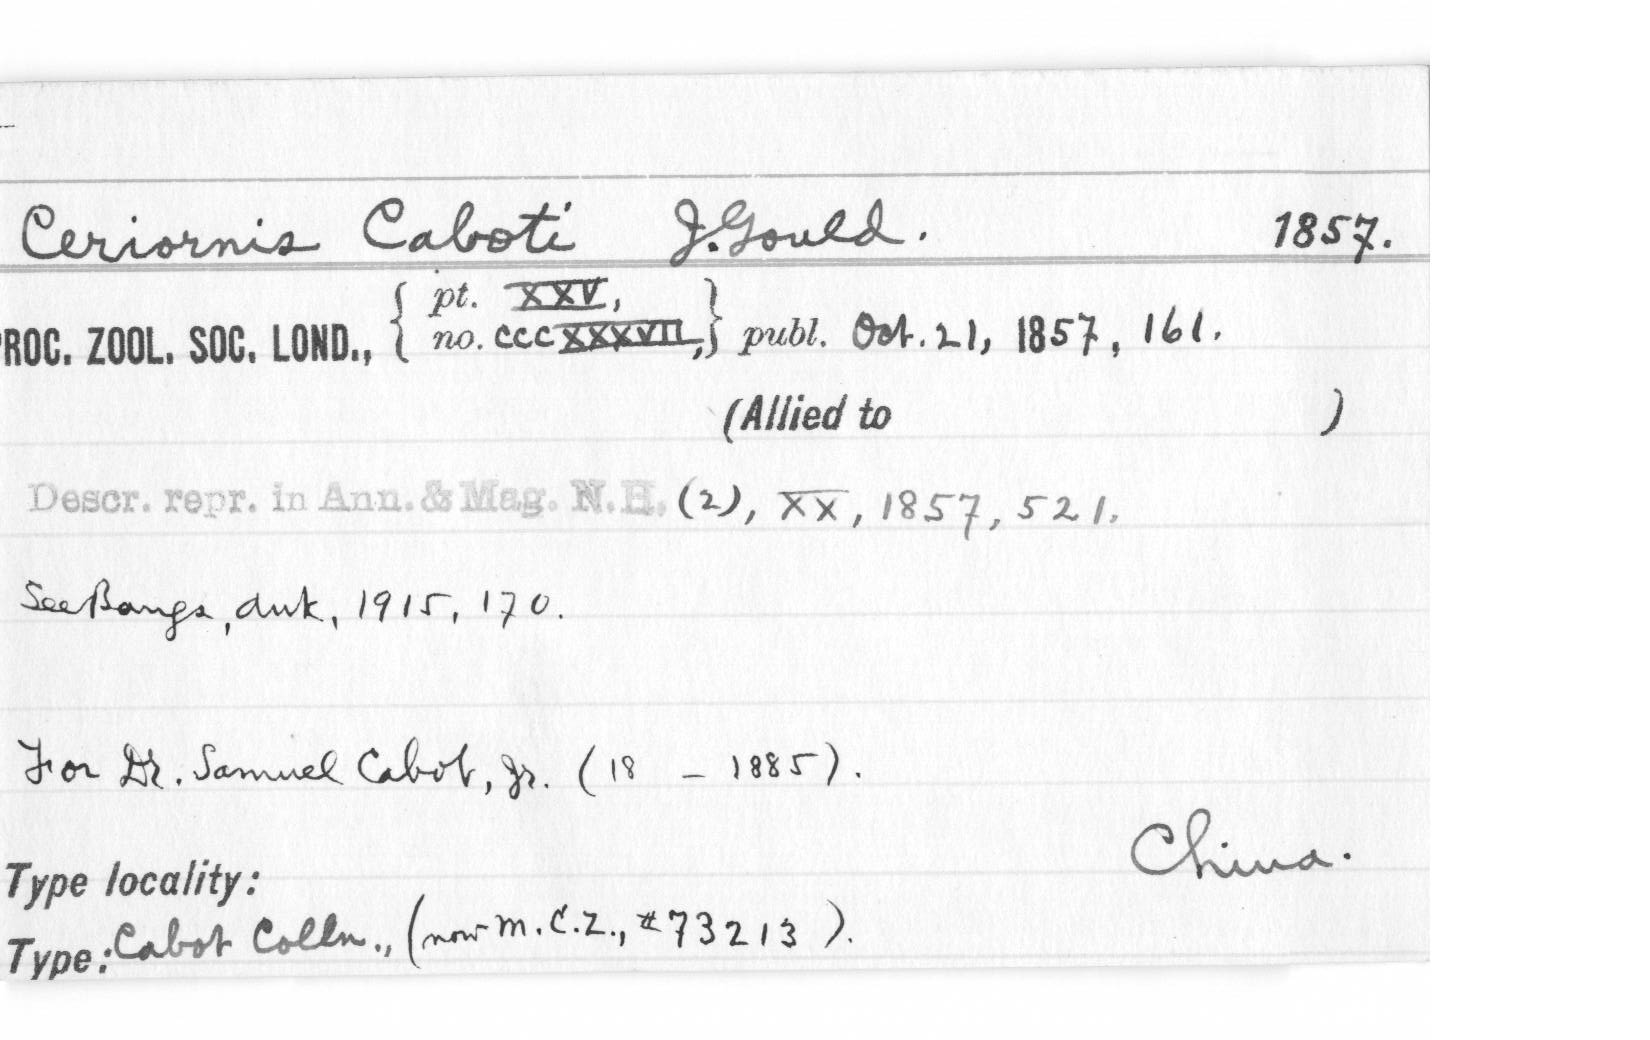 Ceriornis Caboti J. Gould. 1857.
PROC. ZOOL. SOC. LOND., { pt. XXV, no. CCCXXXVII, } publ. Oct. 21, 1857, 161.
(Allied to )
Descr. repr. in Ann. & Mag. N.H. (2), XX, 1857, 521.
See Bangs, Auk, 1915, 170.
For Dr. Samuel Cabot, Jr. (18 – 1885).
China.
Type locality:
Type: Cabot Colln., (now M.C.Z., #73213 ).